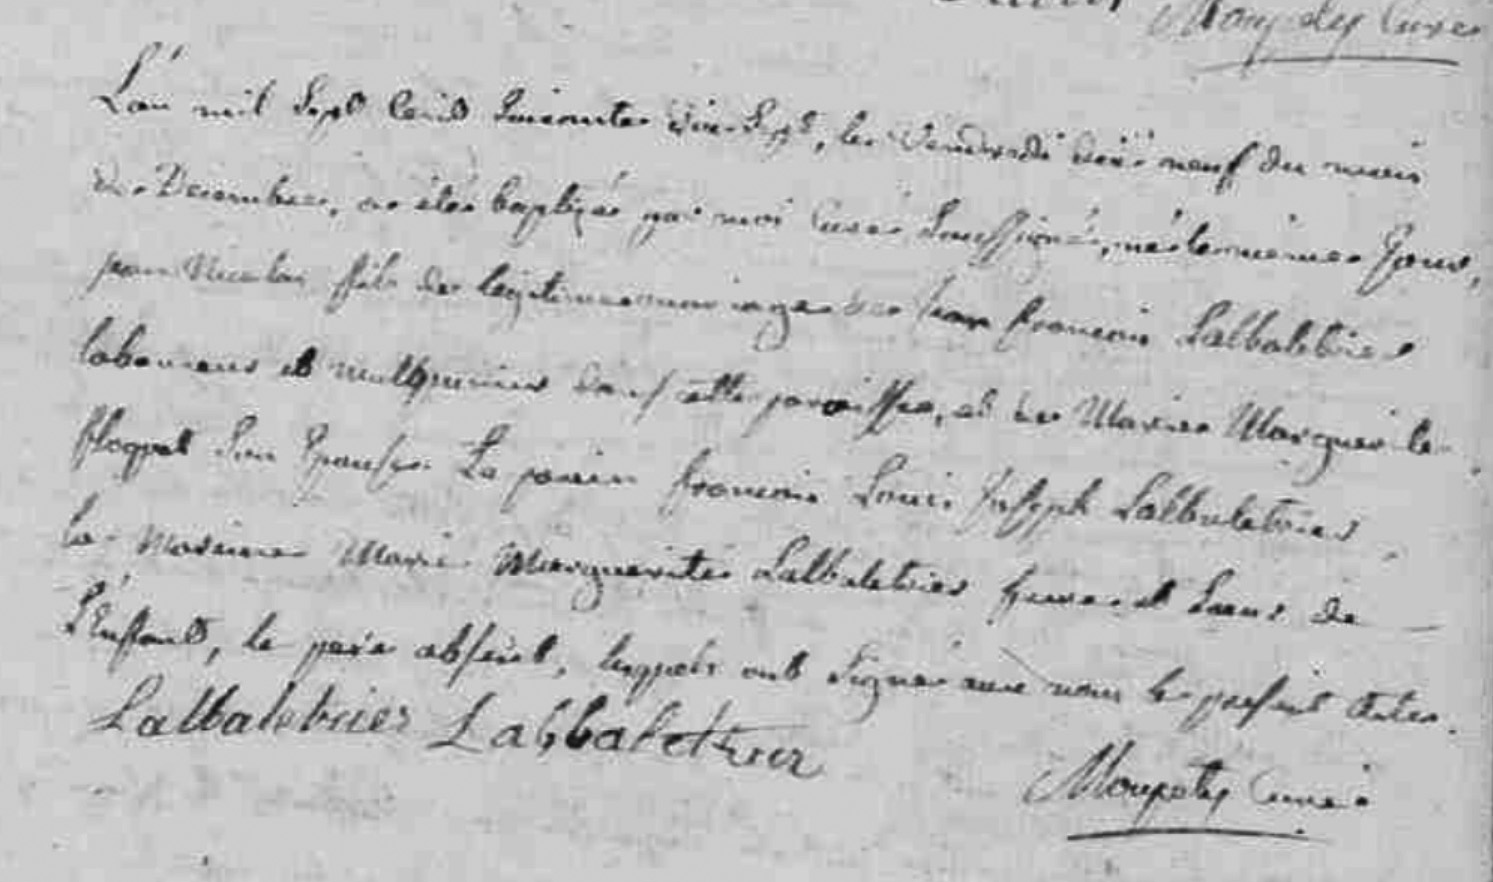 Moupety Curé
L'an mil Sept Cent Soixante dix Sept, le Vendredi dix neuf du mois
de Decembre, a été baptizé par moi Curé Soussigné, né le meme Jour,
jean Nicolas fils de legitime mariage de jean francois Labbaletrier
laboureur et dans cette paroisse, et de Marie Marguerite
floquet Son Epouse. Le parein francois Louis Joseph Labbaletrier
la Mareine Marie Marguerite Labbaletrier frere et Soeur de
l'Enfant, le pere absent, lesquels ont Signé avec nous le present Acte.
Labbaletrier Labbaletrier
Moupety Curé